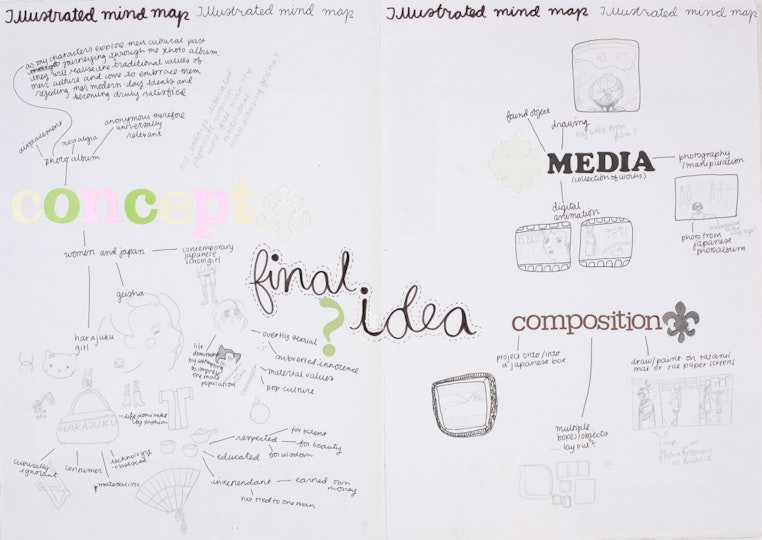 Illustrated mind map Illustrated mind map
as my characters explore their cultural past
through journeying through the photo album
they will realise the traditional values of
their culture and come to embrace them
rejecting their modern-day ideals and
becoming truly satisfied
displacement
nostalgia
anonymous therefore
universally
relevant
photo album
concept
women and japan
contemporary
japanese
schoolgirl
geisha
harajuku
girl
life
dominated
by attempting
to impress
the male
population
overtly sexual
subverted innocence
material values
pop-culture
HARAJUKU
life dominated
by fashion
culturally
ignorant
consumer
technology
obsessed
materialistic
respected
for talent
for beauty
for wisdom
educated
independant
earned own
money
not tied to one man
final
? idea
Illustrated mind map Illustrated mind map
found object
drawing
MEDIA
(collection of works)
photography
/manipulation
digital
animation
photo from
japanese
photoalbum
composition
project onto/into
a japanese box
draw/paint on tatami
mat or rice paper screens
multiple
boxes/objects
...lay out?